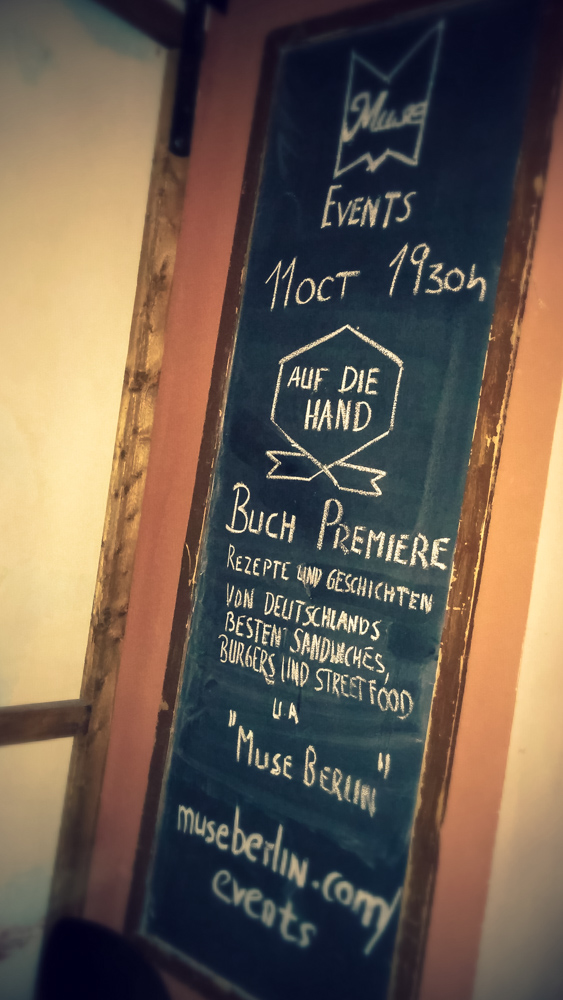 Muse
EVENTS
11 OCT 1930h
AUF DIE
HAND
BUCH PREMIERE
REZEPTE UND GESCHICHTEN
VON DEUTSCHLANDS
BESTEN SANDWICHES,
BURGERS UND STREETFOOD
U.A
"MUSE BERLIN"
museberlin.com/
events